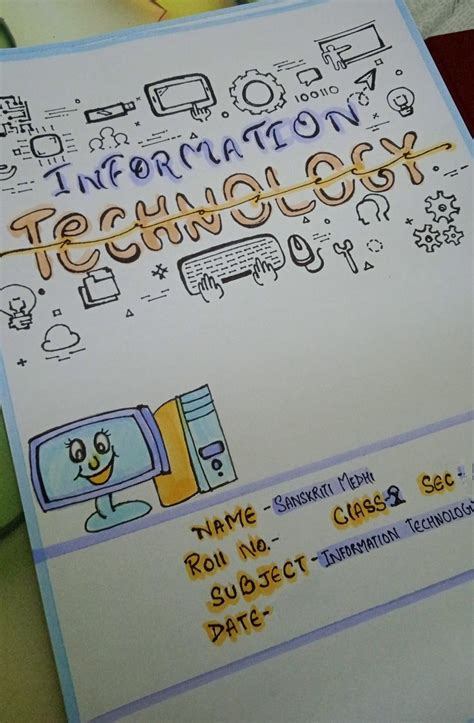 100110
INFORMATION
TECHNOLOGY
NAME - SANSKRITI MEDHI
Roll No.- CLASS- SEC-
SUBJECT - INFORMATION TECHNOLOGY
DATE-